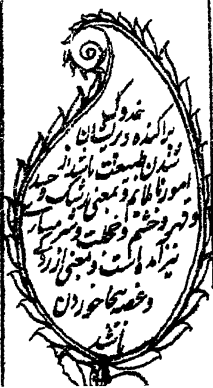 غدوکی
پراکنده و پریشان
شدن طبیعت باشد از
امور ناملایم و بمعنی رشک و حسد
و قهر و خشم و خجلت و شرمساری
نیز آمده است و بمعنی آزردگی
و غصه بیجا خوردن
باشد